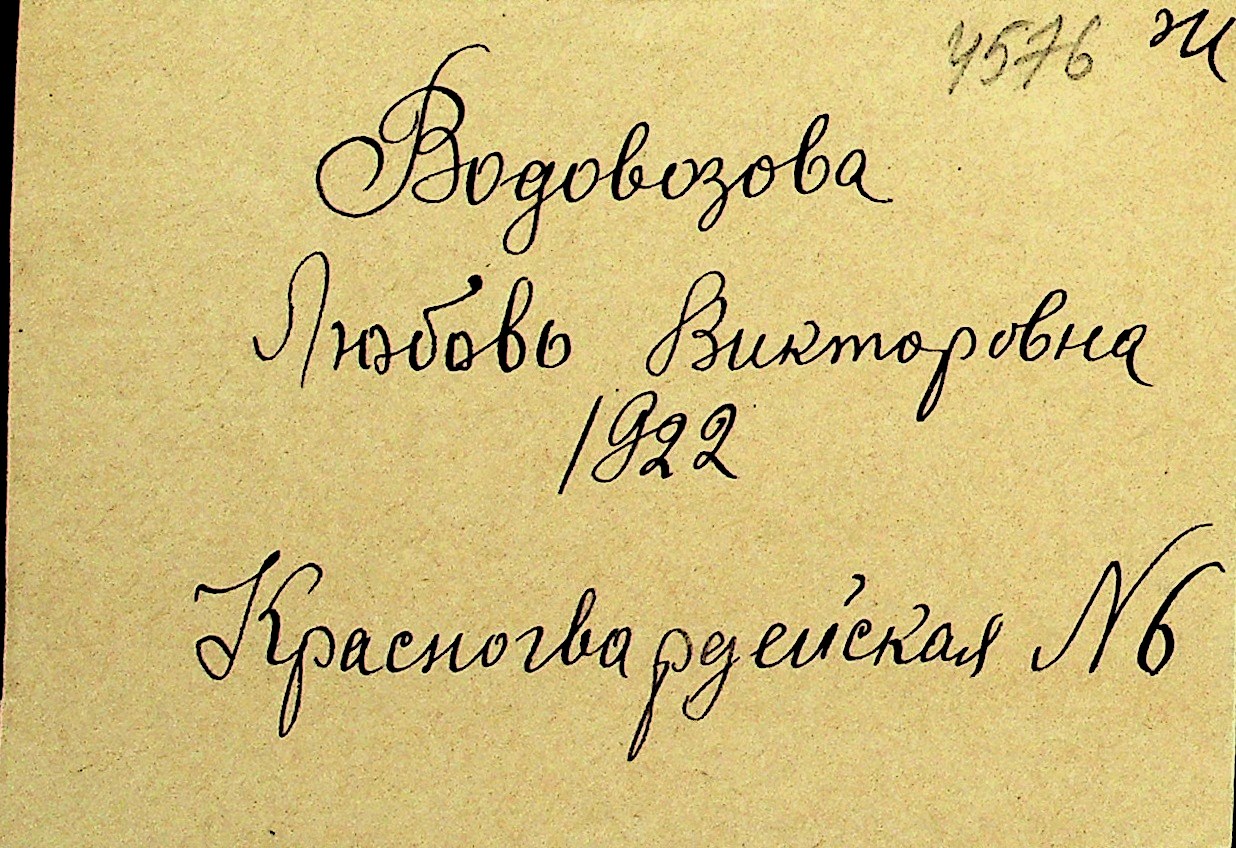 4576 Ж
Водовозова
Любовь Викторовна
1922
Красногвардейская N 6